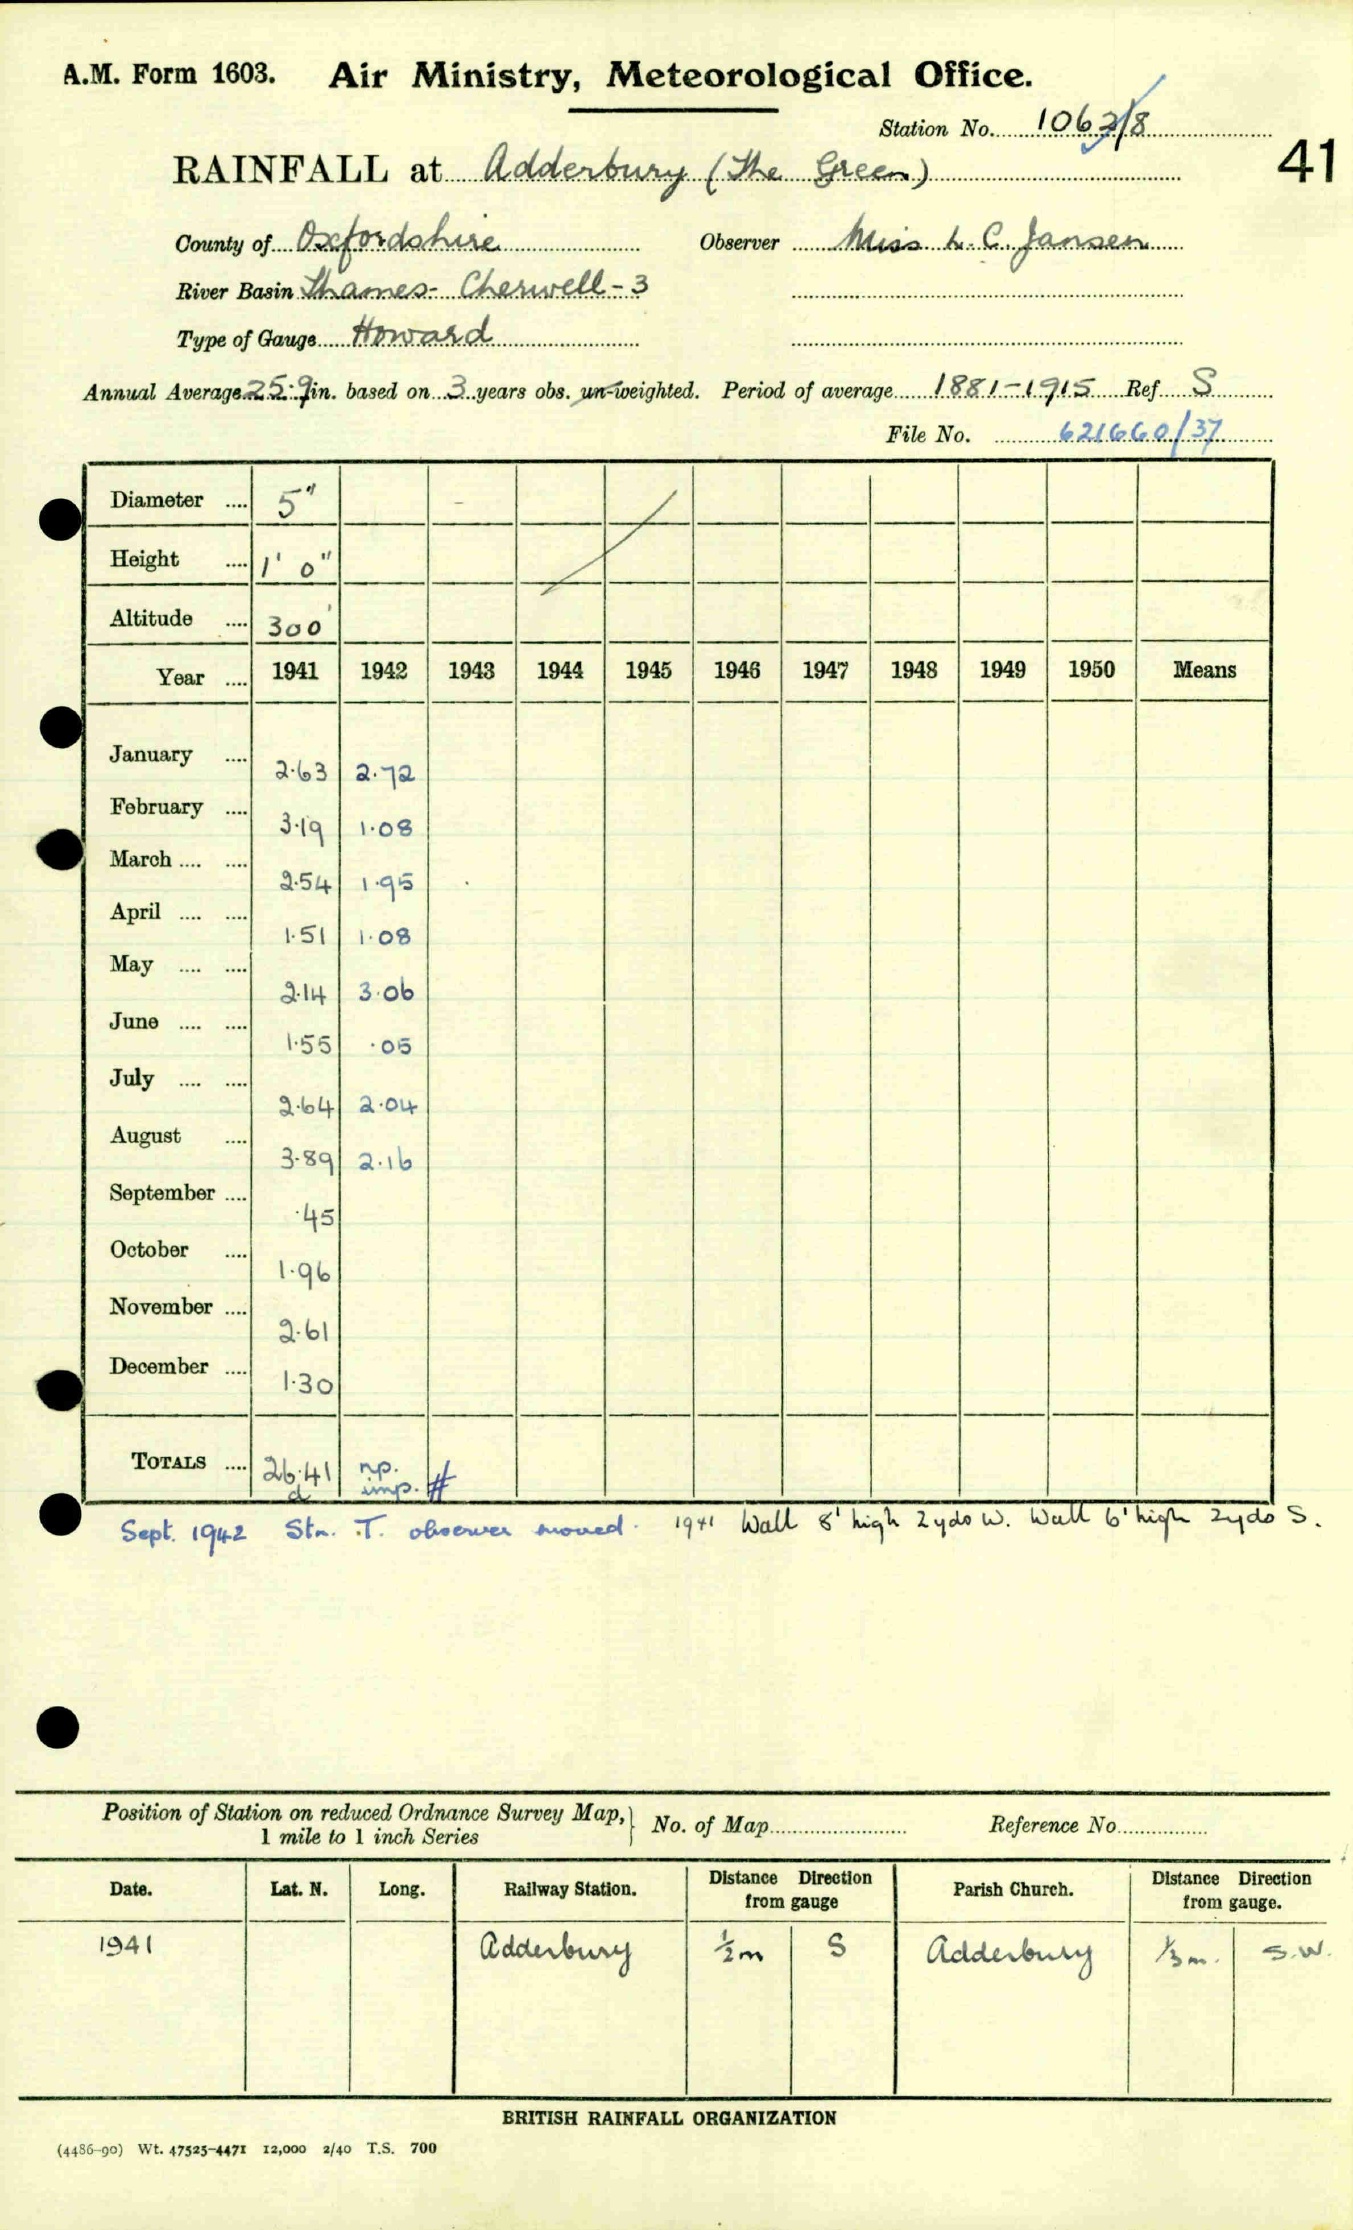 A.M. Form 1603. Air Ministry, Meteorological Office.
Station No. 1062/8
41
RAINFALL at Adderbury (The Green)
County of Oxfordshire Observer Miss L. C. Jansen
River Basin Thames - Cherwell - 3
Type of Gauge Howard
Annual Average 25.9 in. based on 3 years obs. un-weighted. Period of average 1881-1915 Ref S
File No. 621660/37
Diameter .... 5"
Height .... 1' 0"
Altitude .... 300'
Year .... 1941 1942 1943 1944 1945 1946 1947 1948 1949 1950 Means
January .... 2.63 2.72
February .... 3.19 1.08
March .... .... 2.54 1.95
April .... .... 1.51 1.08
May .... .... 2.14 3.06
June .... .... 1.55 .05
July .... .... 2.64 2.04
August .... 3.89 2.16
September .... .45
October .... 1.96
November .... 2.61
December .... 1.30
TOTALS .... 26.41 n.p.
d imp. #
Sept. 1942 Stn. T. observer moved. 1941 Wall 8' high 2 yds W. Wall 6' high 2 yds S.
Position of Station on reduced Ordnance Survey Map, 1 mile to 1 inch Series } No. of Map Reference No
Date. Lat. N. Long. Railway Station. Distance Direction from gauge Parish Church. Distance Direction from gauge.
1941 Adderbury 1/2 m S Adderbury 1/3 m. S.W.
BRITISH RAINFALL ORGANIZATION
(4486-90) Wt. 47525-4471 12,000 2/40 T.S. 700